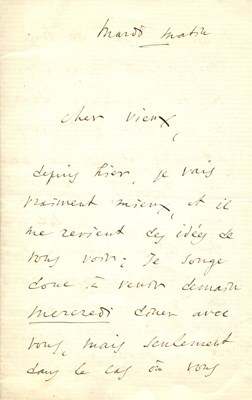 mardi matin
cher vieux,
depuis hier, je vais
vraiment mieux, et il
me revient des idées de
vous voir. Je songe
donc à venir demain
mercredi dîner avec
vous, mais seulement
dans le cas où vous